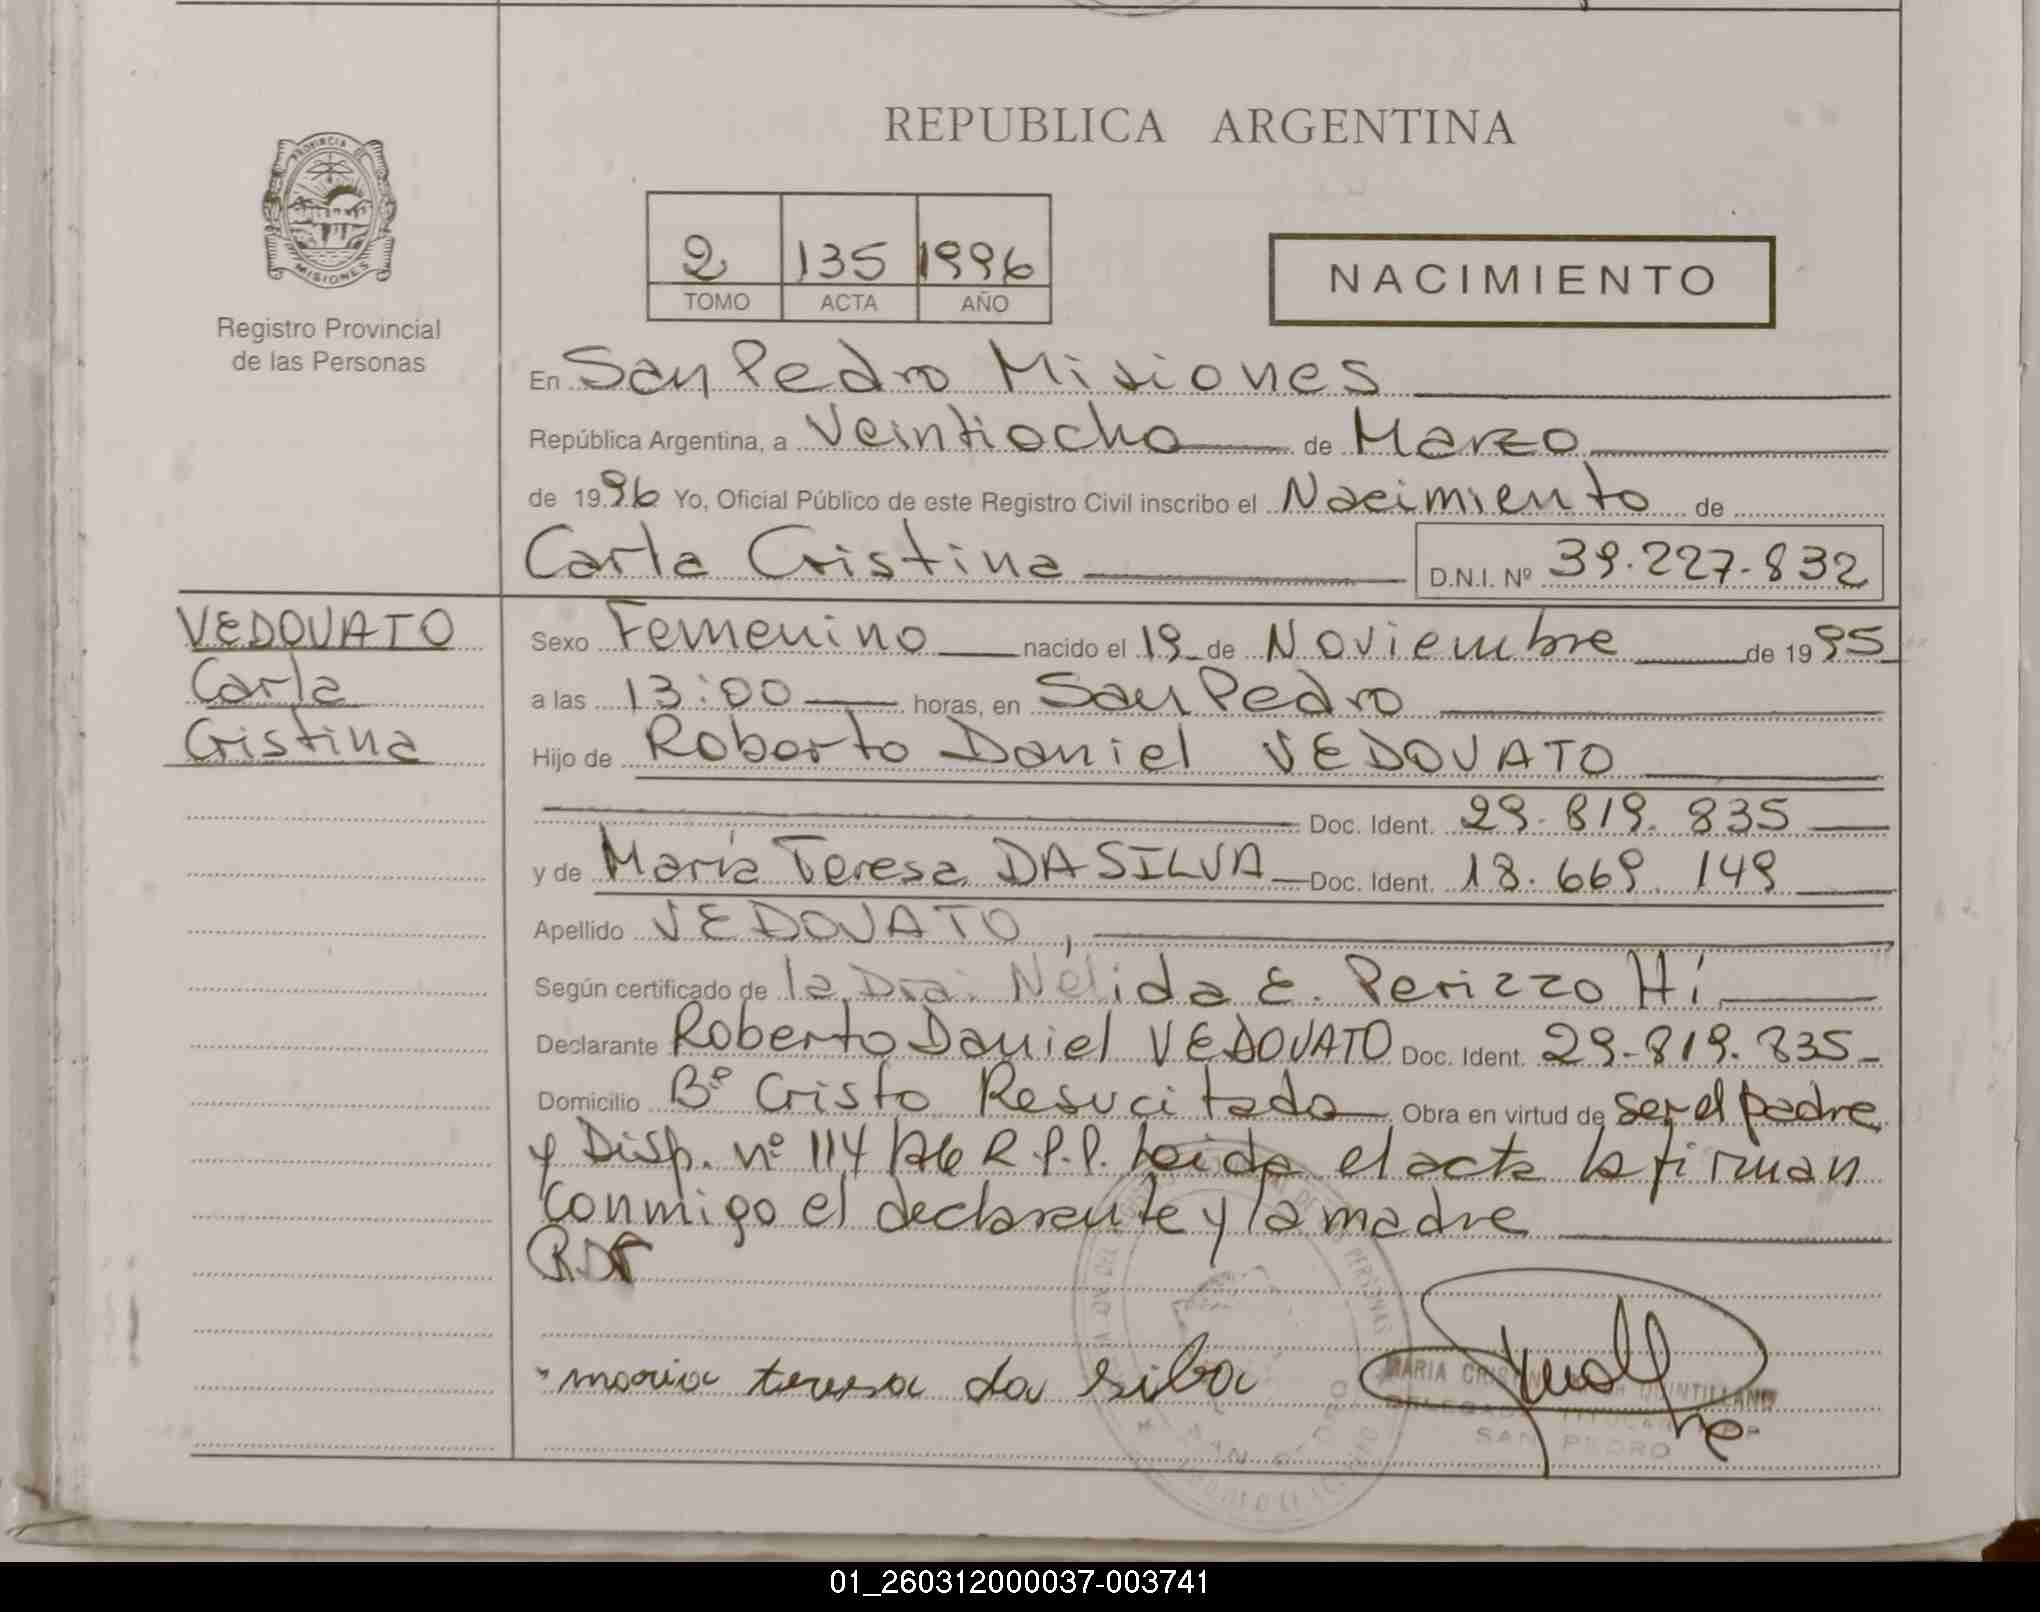 REPUBLICA ARGENTINA
PROVINCIA DE MISIONES
Registro Provincial
de las Personas
2 135 1996
TOMO ACTA AÑO
NACIMIENTO
En San Pedro Misiones
República Argentina, a Veintiocho de Marzo
de 1996 Yo, Oficial Público de este Registro Civil inscribo el Nacimiento de
Carla Cristina D.N.I. Nº 39.227.832
VEDOVATO
Carla
Cristina
Sexo Femenino nacido el 19 de Noviembre de 1995
a las 13:00 horas, en San Pedro
Hijo de Roberto Daniel VEDOVATO
Doc. Ident. 29.819.835
y de María Teresa DA SILVA Doc. Ident. 18.669.149
Apellido VEDOVATO,
Según certificado de la Dra. Nélida E. Perizzo Hí
Declarante Roberto Daniel VEDOVATO Doc. Ident. 29.819.835
Domicilio Bº Cristo Resucitado Obra en virtud de ser el padre
y Disp. nº 114 R.P.P. Leida el acta la firman
conmigo el declarante y la madre
RDV
maria teresa da silva
MARIA CRISTINA QUINTILLANO
DELEGADA TITULAR
SAN PEDRO
01_260312000037-003741